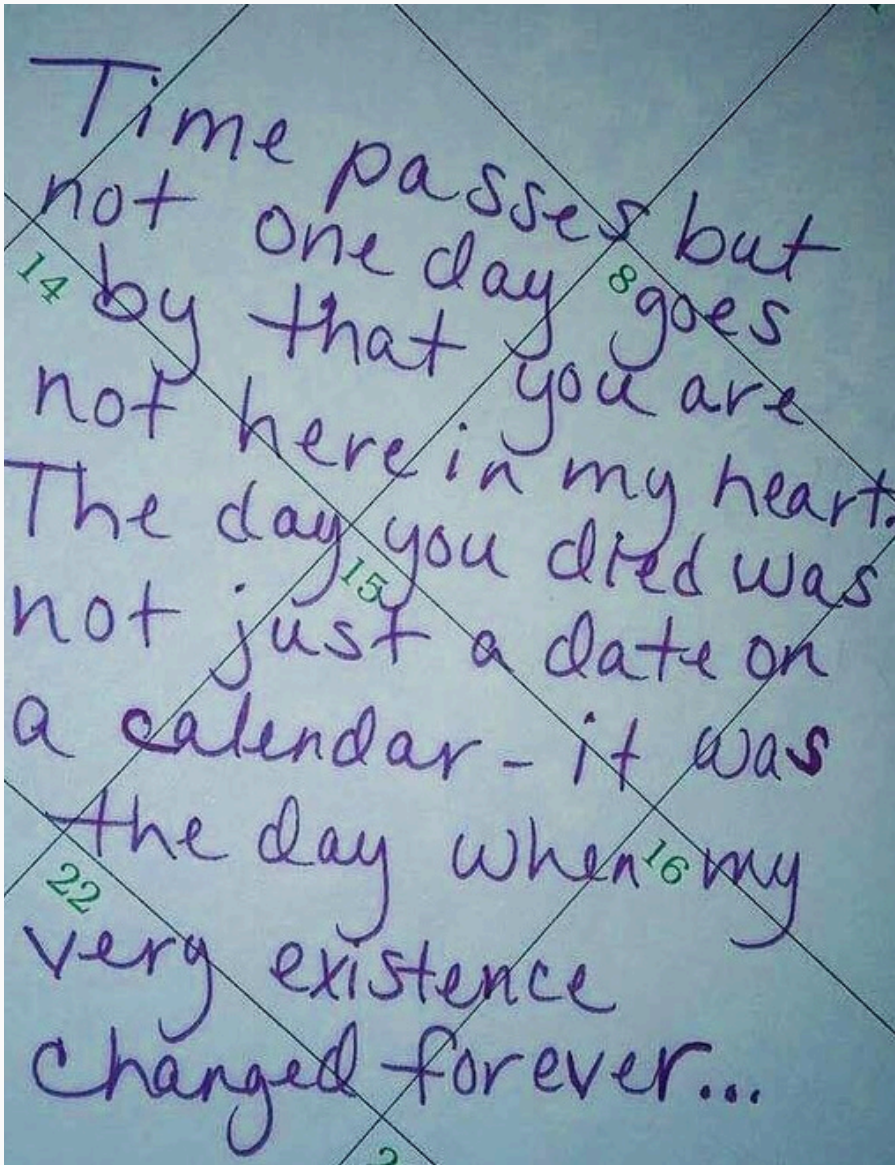 Time passes but
not one day goes
by that you are
not here in my heart.
The day you died was
not just a date on
a calendar - it was
the day when my
very existence
changed forever...
14
8
15
16
22
2